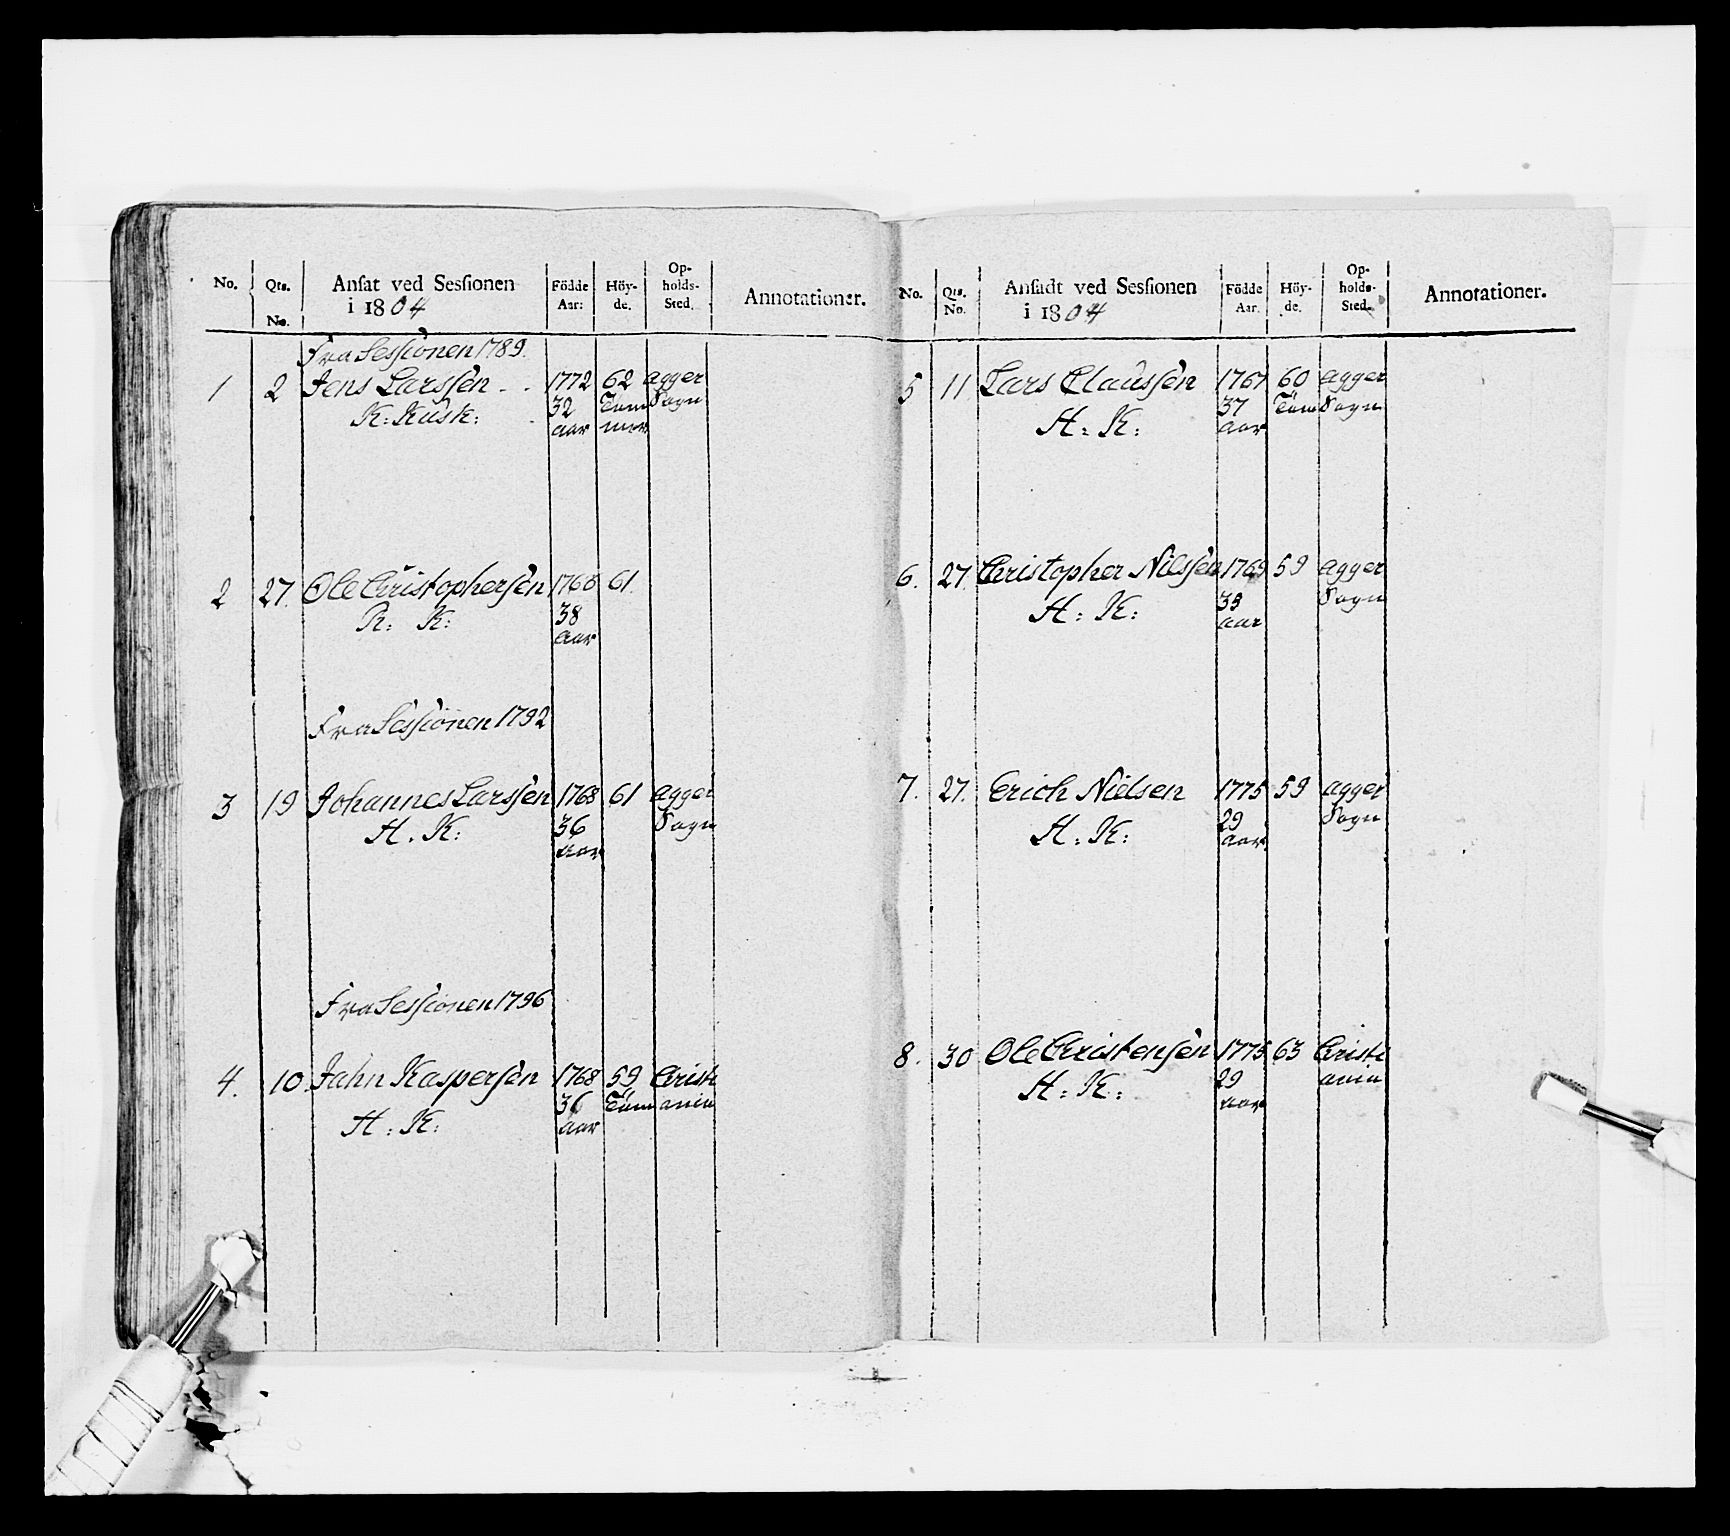 No. Qts. No. Ansat ved Sessionen i 1804 Födde Aar: Höy-de. Op-holds-Sted. Annotationer.
Fra Sessionen 1789.
1 2 Jens Larssen - . 1772 62 Agger
K: Kusk: 32 Tom Sogn
aar mer
2 27. Ole Christophersen 1768 61.
R: K: 38
aar
Fra Sessionen 1792
3 19 Johannes Larssen 1768 61 Agger
H. K: 36 Sogn
aar
Fra Sessionen 1796
4. 10. Jahn Kaspersen 1768 59 Christi
H. K: 36 Tom ania
aar
No. Qts. No. Ansadt ved Sessionen i 1804 Födde Aar. Höy-de. Op-holds-Sted. Annotationer.
5 11 Lars Claussen 1767 60 Agger
H: K: 37 Tom Sogn
aar
6. 27. Christopher Nilssen 1769 59 Agger
H: K: 35 Sogn
aar
7. 27. Erich Nielsen 1775 59 Agger
H: K: 29 Sogn
aar
8. 30 Ole Christensen 1775 63 Christi
H: K: 29 ania
aar